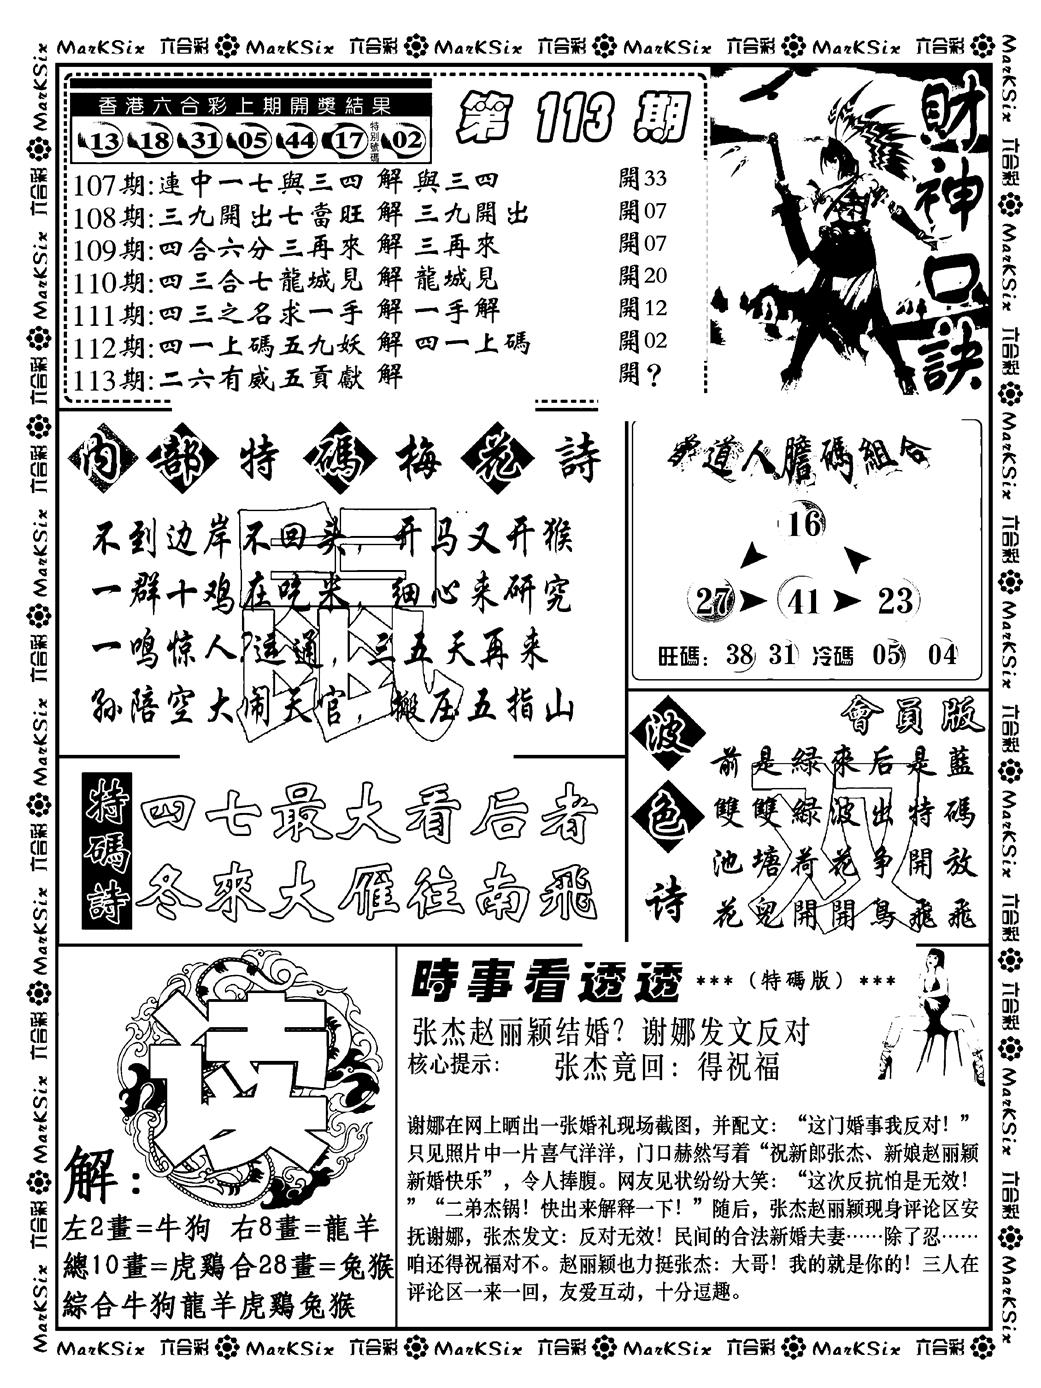 MarKSix 六合彩 MarKSix 六合彩 MarKSix 六合彩 MarKSix 六合彩 MarKSix 六合彩
香港六合彩上期開獎結果
13 18 31 05 44 17 特別號碼 02
第 113 期
107期:連中一七與三四 解 與三四 開33
108期:三九開出七當旺 解 三九開出 開07
109期:四合六分三再來 解 三再來 開07
110期:四三合七龍城見 解 龍城見 開20
111期:四三之名求一手 解 一手解 開12
112期:四一上碼五九妖 解 四一上碼 開02
113期:二六有威五貢獻 解 開?
財神口訣
内部特碼梅花詩
不到边岸不回头，开马又开猴
一群十鸡在吃米，细心来研究
一鸣惊人?运通，三五天再来
孙陪空大闹天官，搬压五指山
道人膽碼組合
16
27 41 23
旺碼: 38 31 冷碼 05 04
波色诗
會員版
前是綠來后是藍
雙雙綠波出特碼
池塘荷花争開放
花兒開開鳥飛飛
特碼詩
四七最大看后者
冬來大雁往南飛
读
解:
左2畫=牛狗 右8畫=龍羊
總10畫=虎鷄合28畫=兔猴
綜合牛狗龍羊虎鷄兔猴
時事看透透 ***（特碼版）***
张杰赵丽颖结婚？谢娜发文反对
核心提示: 张杰竟回：得祝福
谢娜在网上晒出一张婚礼现场截图，并配文：“这门婚事我反对！”
只见照片中一片喜气洋洋，门口赫然写着“祝新郎张杰、新娘赵丽颖
新婚快乐”，令人捧腹。网友见状纷纷大笑：“这次反抗怕是无效！
”“二弟杰锅！快出来解释一下！”随后，张杰赵丽颖现身评论区安
抚谢娜，张杰发文：反对无效！民间的合法新婚夫妻……除了忍……
咱还得祝福对不。赵丽颖也力挺张杰：大哥！我的就是你的！三人在
评论区一来一回，友爱互动，十分逗趣。
MarKSix 六合彩 MarKSix 六合彩 MarKSix 六合彩 MarKSix 六合彩 MarKSix 六合彩